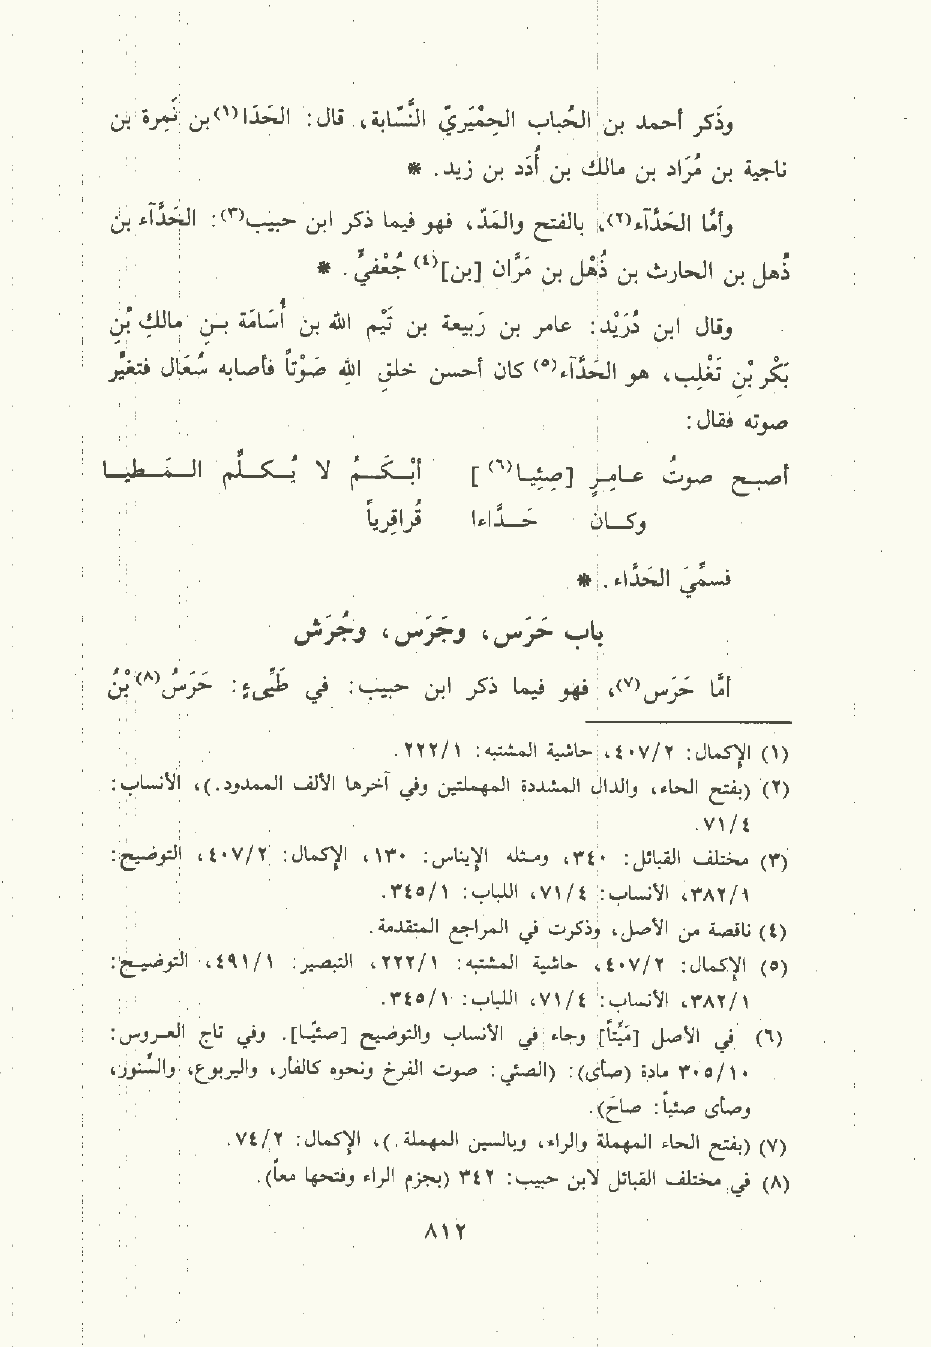 وذَكر أحمد بن الحُباب الحِمْيَريّ النَّسّابة، قال: الحَدَا(١) بن نَمِرة بن
ناجية بن مُرَاد بن مالك بن أُدَد بن زيد. *
وأمّا الحَدَّآء(٢)، بالفتح والمَدّ، فهو فيما ذكر ابن حبيب(٣): الحَدَّآء بن
ذُهل بن الحارث بن ذُهْل بن مَرَّان [بن](٤) جُعْفيٍّ. *
وقال ابن دُرَيْد: عامر بن رَبيعة بن تَيْم الله بن أُسَامَة بن مالكِ بْنِ
بَكْرِ بْنِ تَغْلِب، هو الحَدَّآء(٥) كان أحسن خلقِ اللهِ صَوْتاً فأصابه سُعَال فتغيَّر
صوته فقال:
أصبح صوتُ عامِرٍ [صِئِيا(٦)] أَبْكَمُ لا يُكلَّم المَطيا
وكان حَدَّاءا قُراقِرياً
فسمِّيَ الحَدَّاء. *
باب حَرَس، وجَرَس، وجُرَش
أمَّا حَرَس(٧)، فهو فيما ذكر ابن حبيب: في طَيِّىءٍ: حَرَسُ(٨) بْنُ
(١) الإكمال: ٤٠٧/٢، حاشية المشتبه: ٢٢٢/١.
(٢) (بفتح الحاء، والدال المشددة المهملتين وفي آخرها الألف الممدود.)، الأنساب:
٧١/٤.
(٣) مختلف القبائل: ٣٤٠، ومثله الإيناس: ١٣٠، الإكمال: ٤٠٧/٢، التوضيح:
٣٨٢/١، الأنساب: ٧١/٤، اللباب: ٣٤٥/١.
(٤) ناقصة من الأصل، وذكرت في المراجع المتقدمة.
(٥) الإكمال: ٤٠٧/٢، حاشية المشتبه: ٢٢٢/١، التبصير: ٤٩١/١، التوضيح:
٣٨٢/١، الأنساب: ٧١/٤، اللباب: ٣٤٥/١.
(٦) في الأصل [مَيِّتاً] وجاء في الأنساب والتوضيح [صئيَّا]. وفي تاج العروس:
٣٠٥/١٠ مادة (صأى): (الصئي: صوت الفرخ ونحوه كالفأر، واليربوع، والسِّنور،
وصأى صئياً: صاحَ).
(٧) (بفتح الحاء المهملة والراء، وبالسين المهملة.)، الإكمال: ٧٤/٢.
(٨) في مختلف القبائل لابن حبيب: ٣٤٢ (بجزم الراء وفتحها معاً).
٨١٢